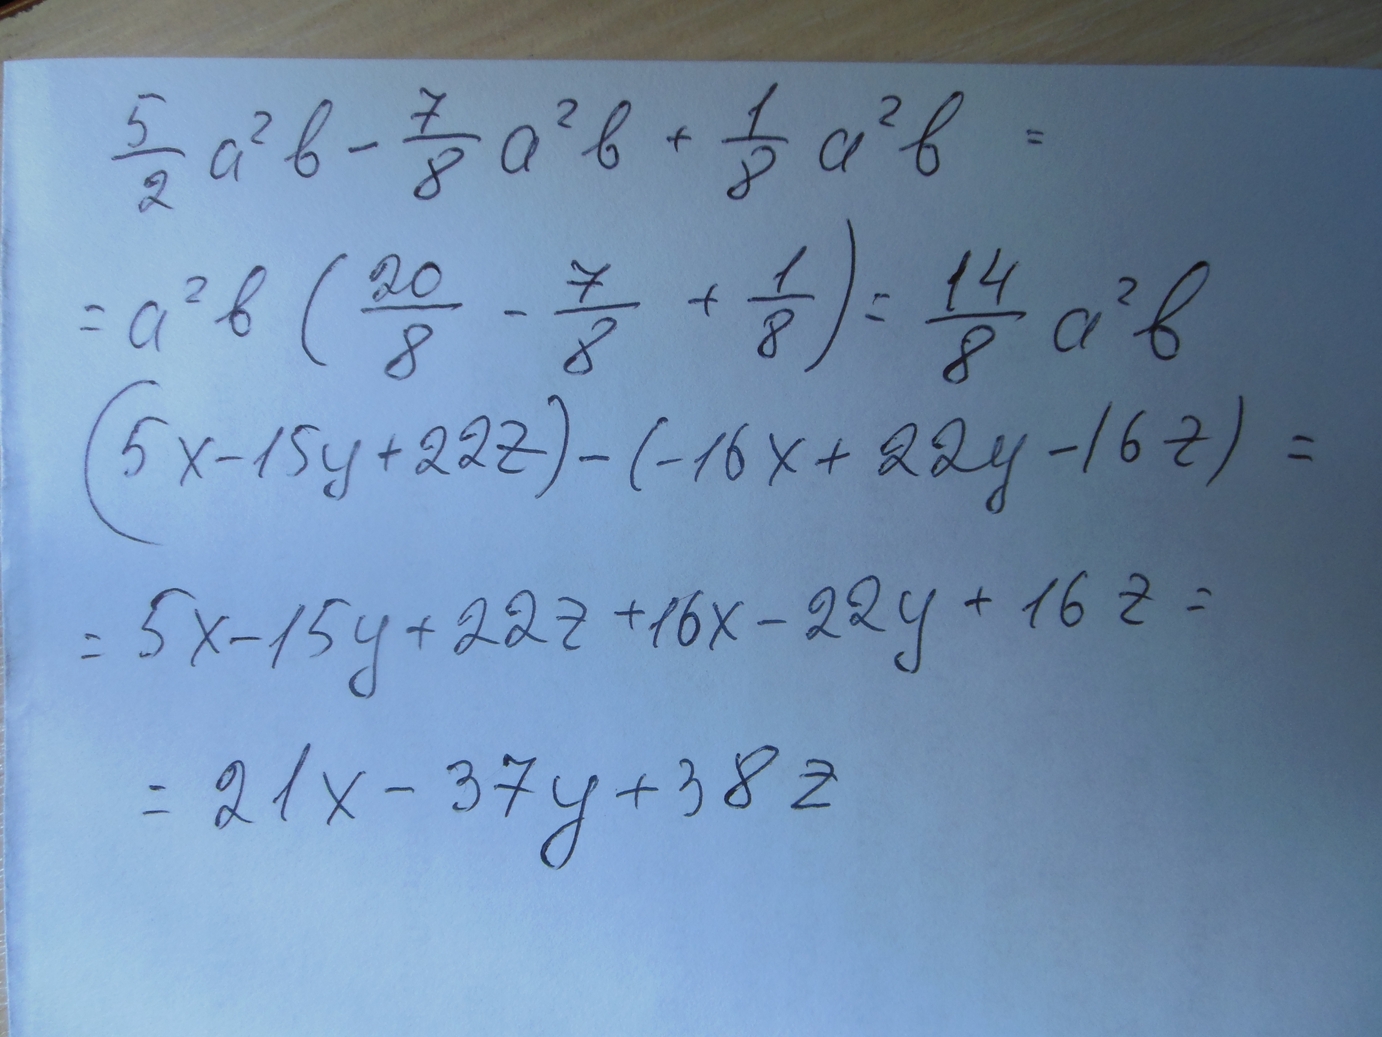 5/2 a²b - 7/8 a²b + 1/8 a²b =
= a²b (20/8 - 7/8 + 1/8) = 14/8 a²b
(5x-15y+22z)-(-16x+22y-16z) =
= 5x-15y+22z+16x-22y+16z =
= 21x-37y+38z